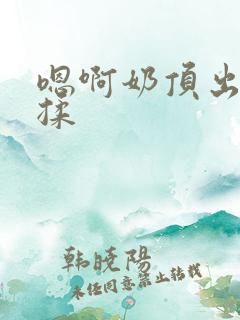 嗯啊奶頂出
揉
韩晓陽
未经同意禁止转载